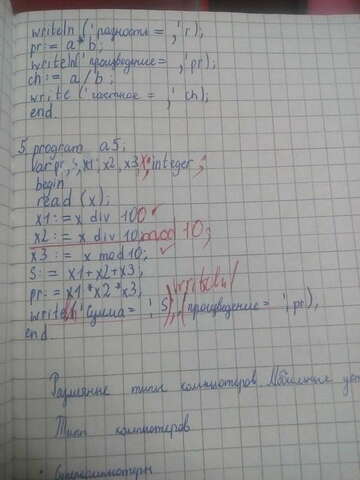 writeln ('разность = ', r);
pr := a * b;
writeln ('произведение = ', pr);
ch := a / b;
write ('частное = ', ch);
end.
5. program a5;
var pr, s, x1, x2, x3, x: integer;
begin
read (x);
x1 := x div 100
x2 := x div 10 mod 10;
x3 := x mod 10;
s := x1 + x2 + x3;
pr := x1 * x2 * x3;
writeln
write ('Сумма = ', s), ('произведение = ', pr),
end.
Размяные типы компьютеров. Мобильные
Типы компьютеров